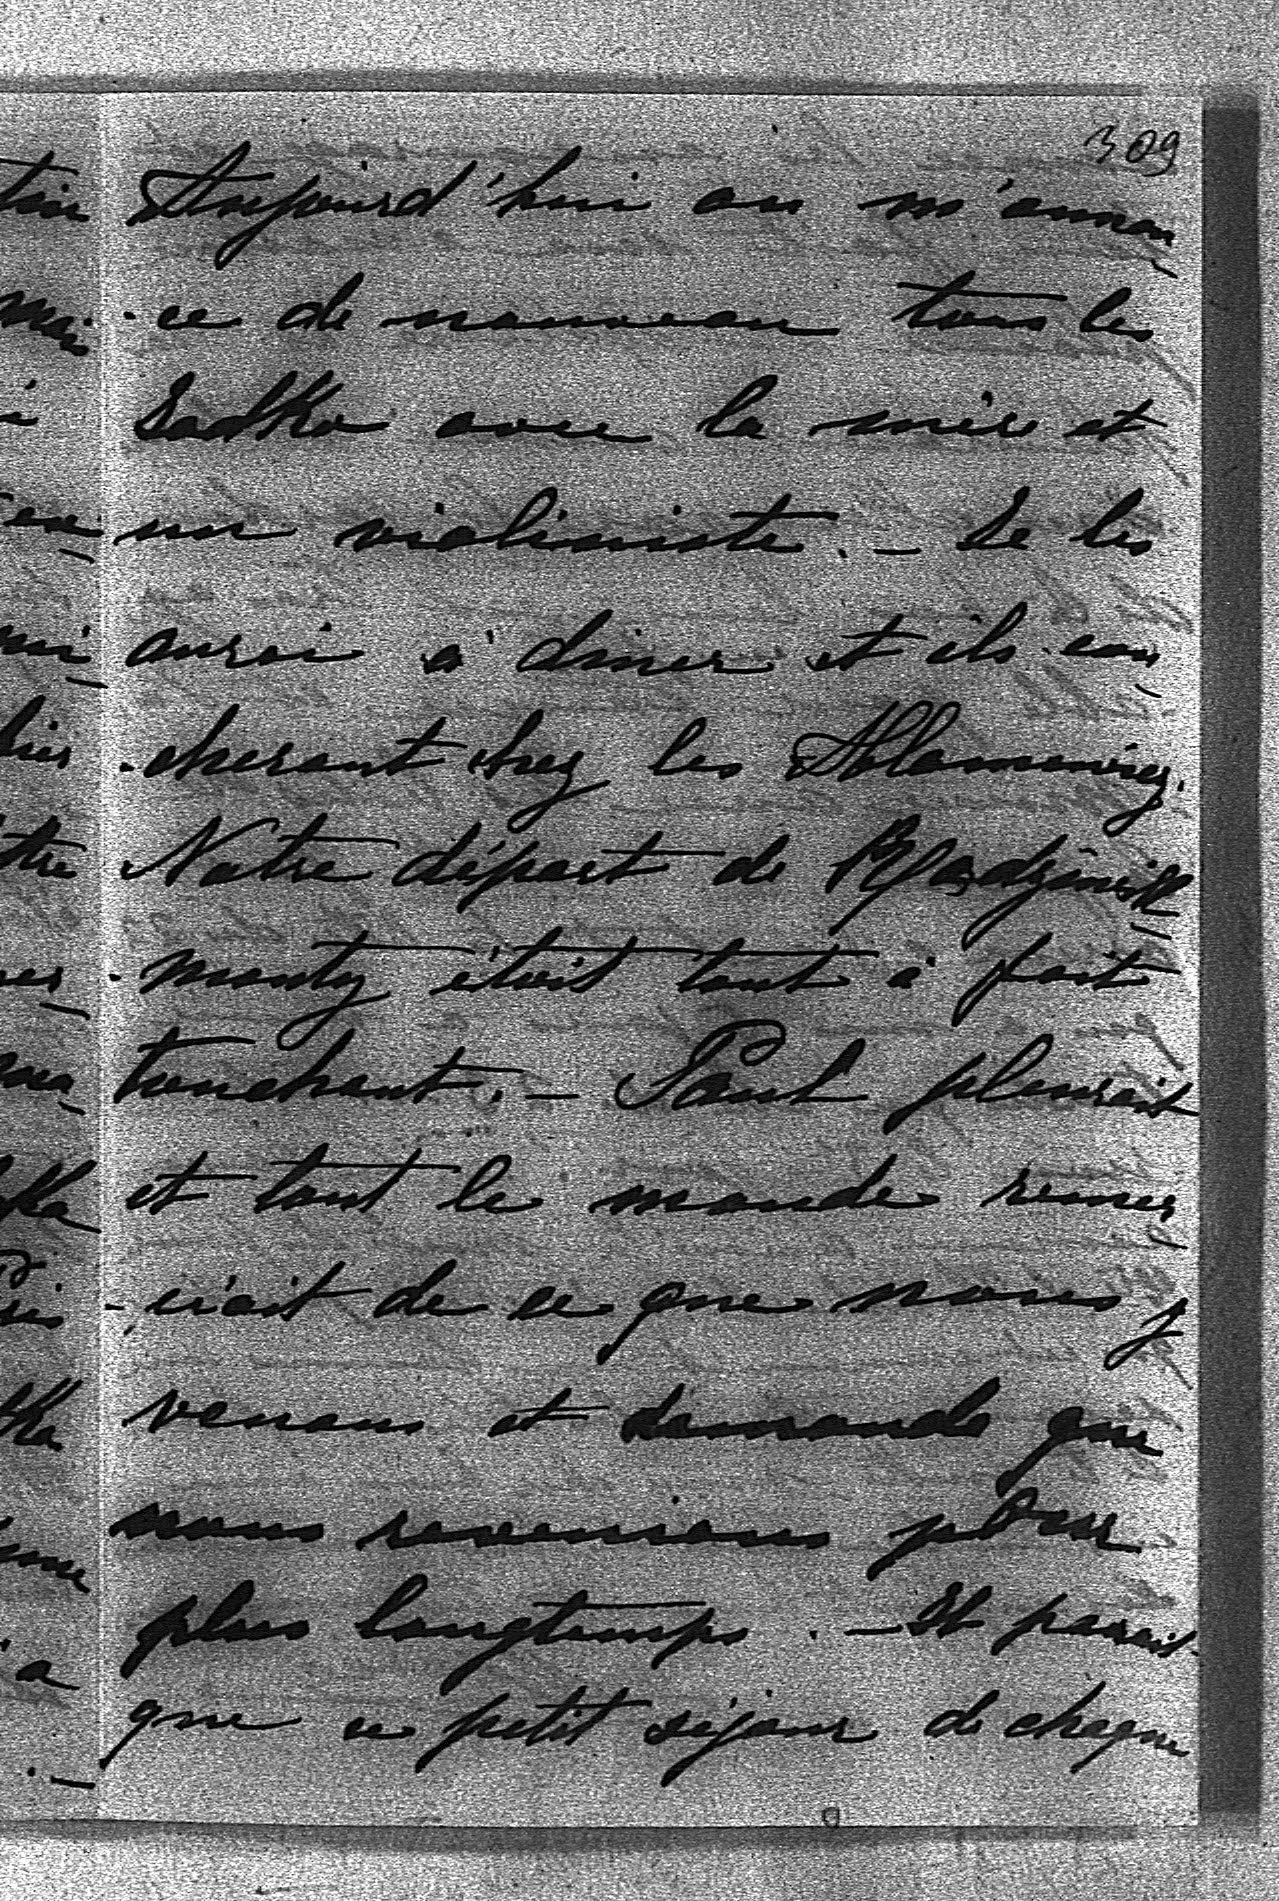 309
Aujourd'hui on m'annon
-ce de nouveau tous les
Sadko avec la mère et
un violiniste. - Je les
aurai à diner et ils cou
-cheront chez les
Notre départ de
-monty étoit tout à fait
touchant. - Paul pleurait
et tout le monde remer
-ciait de ce que nous y
venons et demande que
nous revenions pour
plus longtemps. - Il parait
que ce petit séjour de chaque